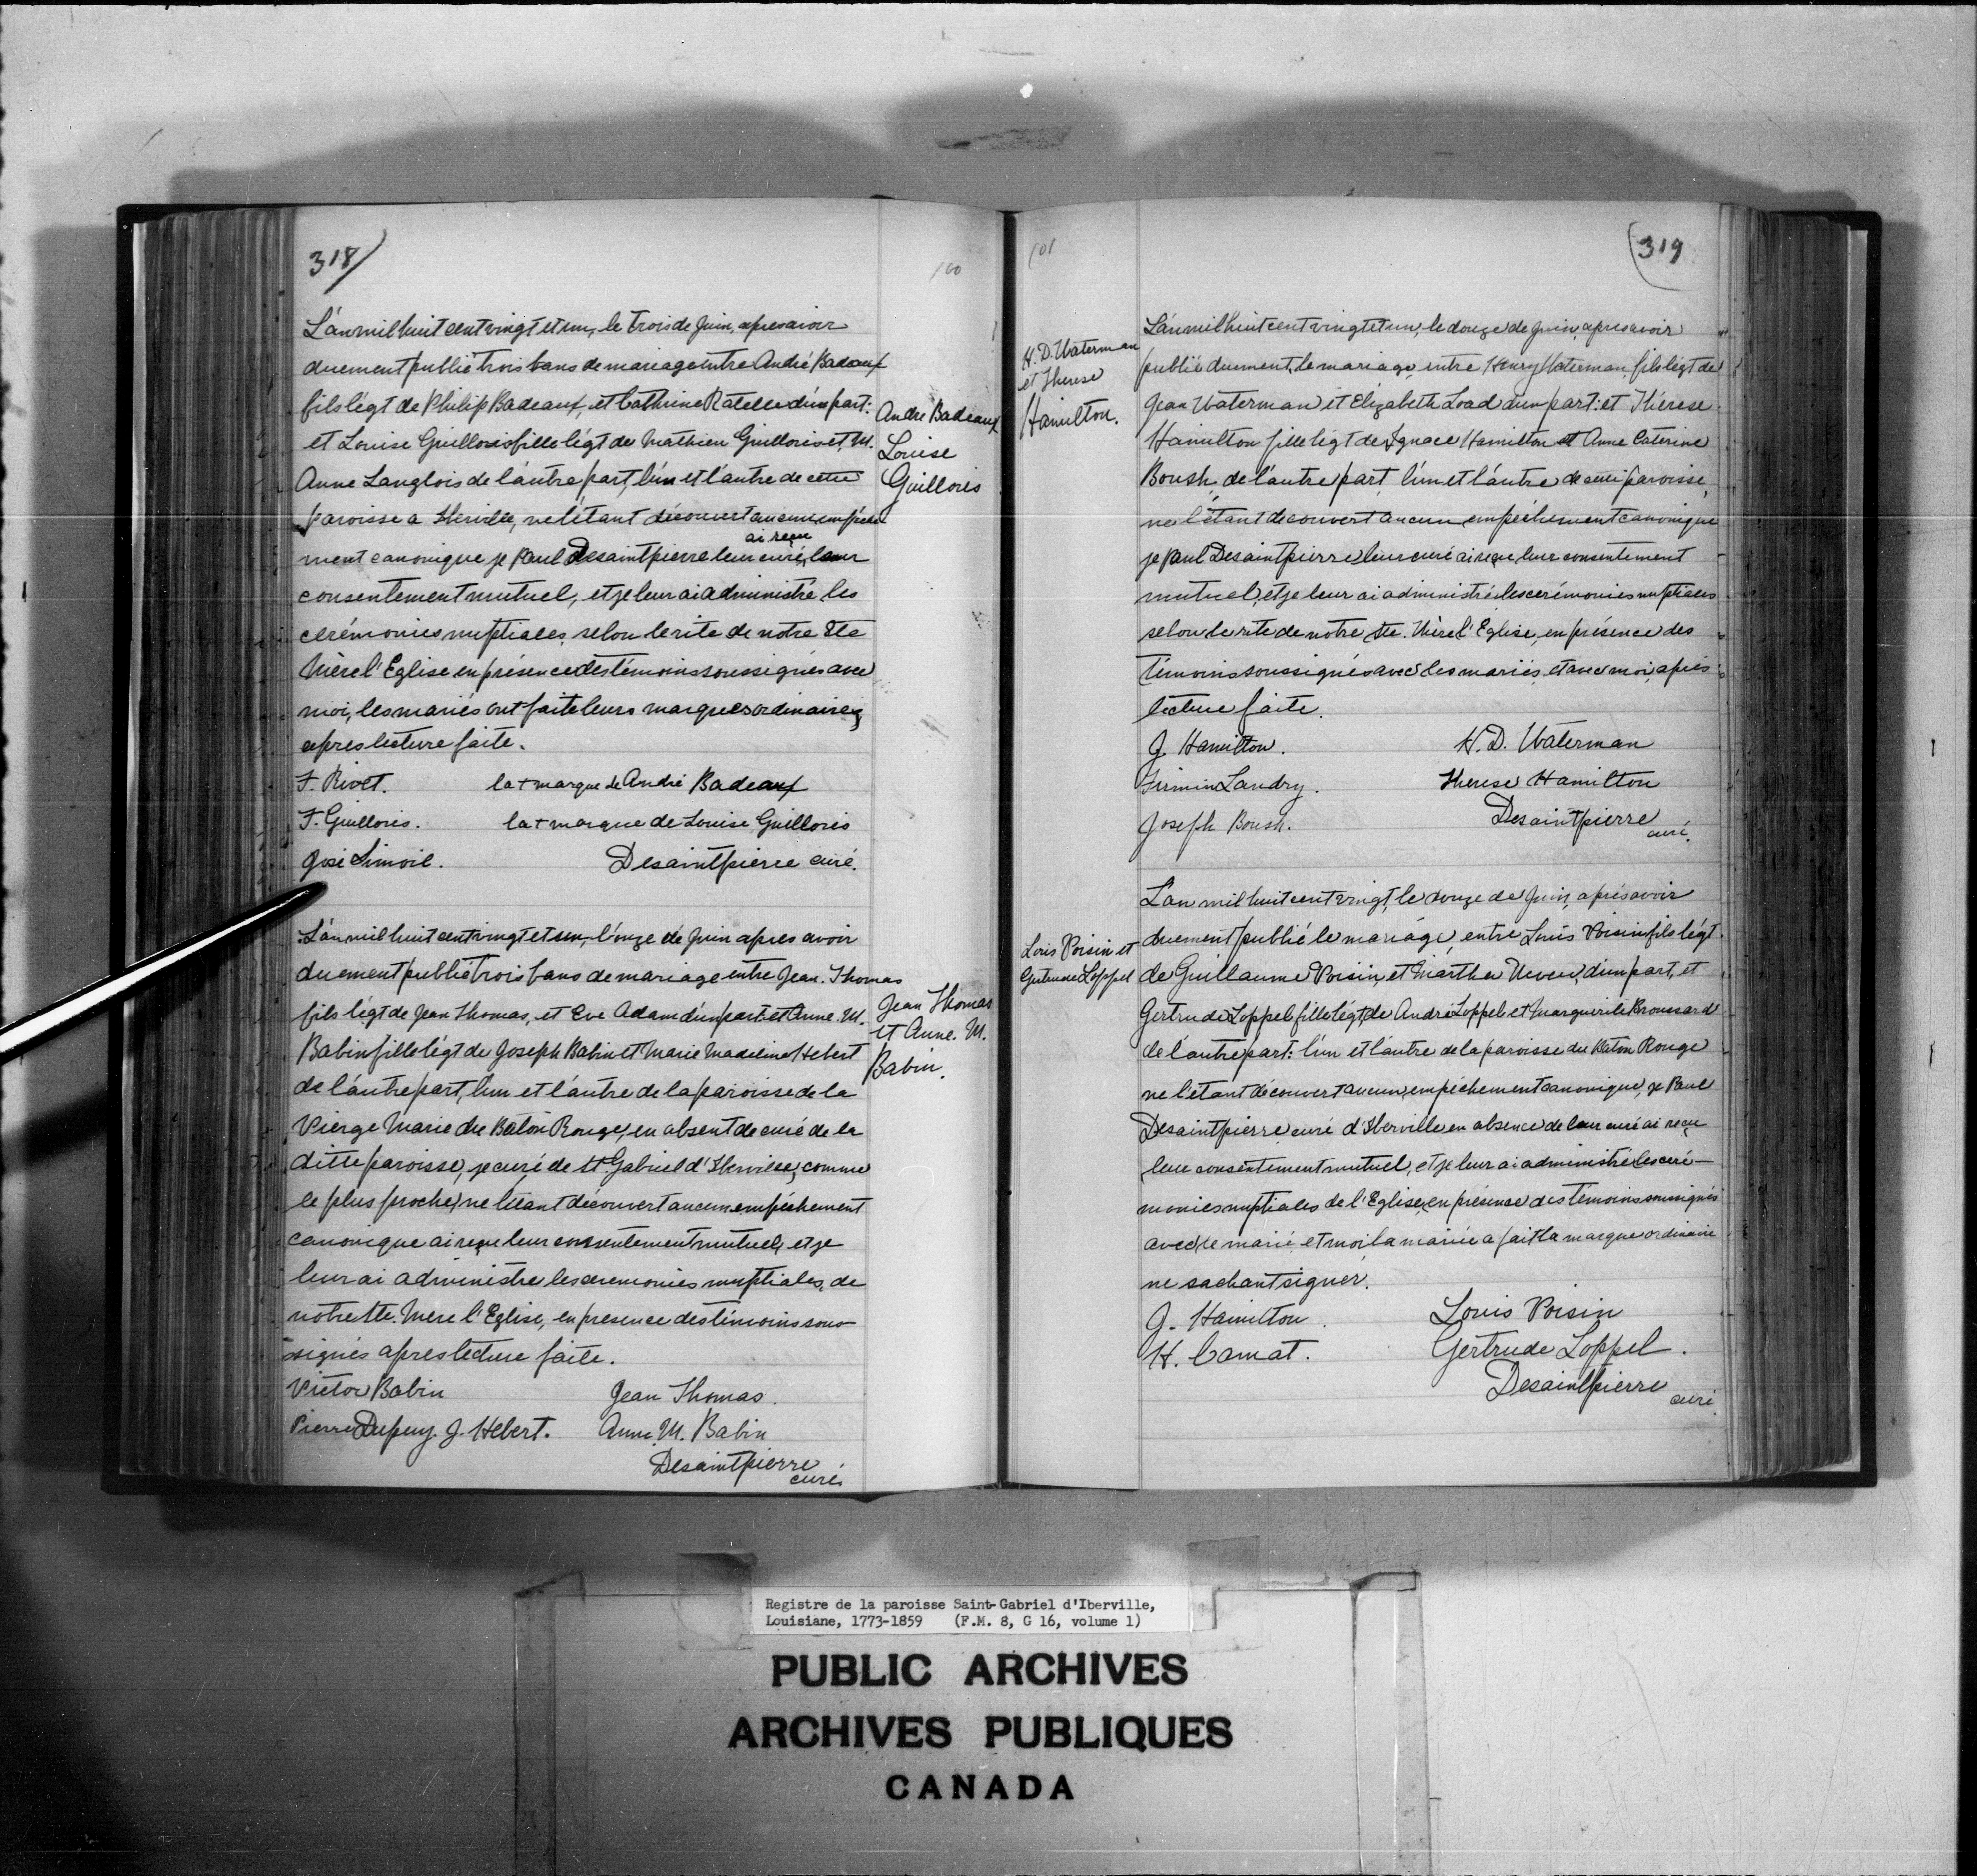 318/
100
L'an mil huit cent vingt et un, le trois de Juin, apres avoir
duement publié trois bans de mariage entre André Badeaux
fils légt de Philip Badeaux, et Cathrine Ratelle d'un part:
et Louise Guilloris fille légt de Mathieu Guilloris et M.
Anne Langlois de l'autre part, l'un et l'autre de cette
paroisse a Iberville, ne l'étant découvert aucun empêche
ment canonique je Paul Desaintpierre leur curé, ai reçu leur
consentement mutuel, et je leur ai administré les
cerémonies nuptiales selon le rite de notre Ste
Mère l'Eglise en présence des témoins soussignés avec
moi, les mariés ont faite leurs marques ordinaires,
apres lecture faite.
F. Rivet. la + marque de André Badeaux
F. Guilloris. la + marque de Louise Guilloris
José Simoil. Desaintpierre curé.
Andre Badeaux
Louise
Guilloris
L'an mil huit cent vingt et un, l'onze de Juin apres avoir
duement publié trois bans de mariage entre Jean. Thomas
fils légt de Jean Thomas, et Eve Adam d'un part: et Anne. M.
Babin fille légt de Joseph Babin et Marie Madeline Hebert
de l'autre part, l'un et l'autre de la paroisse de la
Vierge Marie du Bâton Rouge, en absent de curé de la
ditte paroisse, je curé de St. Gabriel d'Iberville, comme
le plus proche, ne l'étant découvert aucun empêchement
canonique ai reçu leur consentement mutuel, et je
leur ai administre les ceremonies nuptiales, de
notre Ste. Mere l'Eglise, en presence des témoins sous
signés apres lecture faite.
Victor Babin Jean Thomas.
Pierre Dupuy. J. Hebert. Anne. M. Babin
Desaintpierre
curé
Jean Thomas
et Anne. M.
Babin.
101
319
H. D. Waterman
et Therese
Hamilton.
L'an mil huit cent vingt et un, le douze de Juin, apres avoir
publié duement, le mariage, entre Henry Waterman, fils légt de
Jean Waterman et Elizabeth Load d'un part: et Thérese
Hamilton fille légt de Ignace Hamilton et Anne Caterine
Boush, de l'autre part, l'un et l'autre de cette paroisse,
ne l'étant decouvert aucun empêchement canonique
je Paul Desaintpierre leur curé ai reçu leur consentement
mutuel, et je leur ai administré les cerémonies nuptiales
selon le rite de notre Ste. Mère l'Eglise, en présence des
témoins soussignés avec les mariés, et avec moi, après
lecture faite.
J. Hamilton. H. D. Waterman
Firmin Landry. Therese Hamilton
Joseph Boush. Desaintpierre
curé.
Louis Voisin et
Gertrude Loppel
L'an mil huit cent vingt, le douze de Juin, après avoir
duement publié le mariage, entre Louis Voisin fils légt
de Guillaume Voisin, et Marthe Neveu, d'un part, et
Gertrude Loppel fille légt, de André Loppel et Marguerite Broussard
de l'autre part: l'un et l'autre de la paroisse du Baton Rouge
ne l'étant découvert aucun, empêchement canonique, je Paul
Desaintpierre curé d'Iberville en absence de leur curé ai reçu
leur consentement mutuel, et je leur ai administré les ceré-
monies nuptiales de l'Eglise, en présence des témoins soussignés
avec le marié, et moi, la mariée a fait la marque ordinaire
ne sachant signer.
J. Hamilton. Louis Voisin
H. Comat. Gertrude Loppel.
Desaintpierre
curé.
Registre de la paroisse Saint-Gabriel d'Iberville,
Louisiane, 1773-1859 (F.M. 8, G 16, volume 1)
PUBLIC ARCHIVES
ARCHIVES PUBLIQUES
CANADA